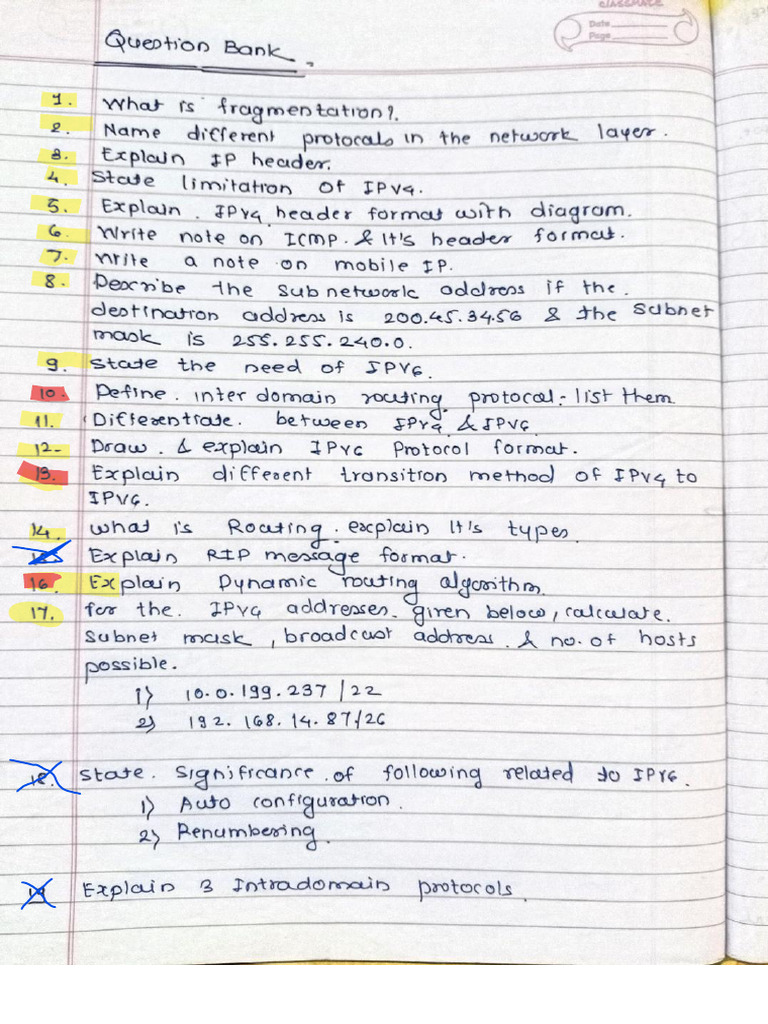 CLASSMATE
Date
Page
Question Bank.
1. What is fragmentation?.
2. Name different protocals in the network layer.
3. Explain IP header.
4. State limitation of IPV4.
5. Explain. IPV4 header format with diagram.
6. Write note on ICMP. & It's header format.
7. Write a note on mobile IP.
8. Describe the sub network address if the.
destination address is 200.45.34.56 & the subnet
mask is 255.255.240.0.
9. State the need of IPV6.
10. Define. inter domain routing protocol. list them
11. Differentiate. between IPV4 & IPV6
12- Draw. & explain IPV6 Protocol format.
13. Explain different transition method of IPV4 to
IPV6.
14. What is Routing. explain It's types.
15. Explain RIP message format.
16. Explain Dynamic routing algorithm.
17. for the. IPV4 addresses. given below, calculate.
Subnet mask, broadcast address. & no. of hosts
possible.
1) 10.0.199.237 /22
2) 192.168.14.87/26
18. State. Significance. of following related to IPV6.
1) Auto configuration.
2) Renumbering.
19 Explain 3 Intradomain protocols.